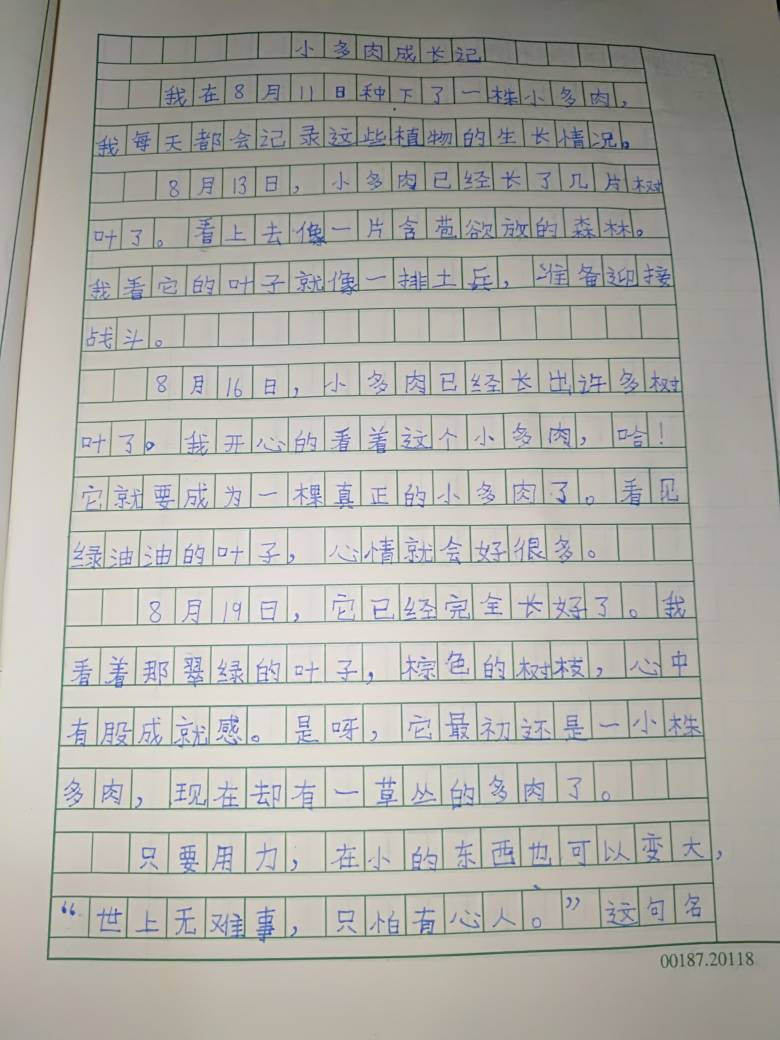 小多肉成长记
我在8月11日种下了一株小多肉，
我每天都会记录这些植物的生长情况。
8月13日，小多肉已经长了几片树
叶了。看上去像一片含苞欲放的森林。
我看它的叶子就像一排士兵，准备迎接
战斗。
8月16日，小多肉已经长出许多树
叶了。我开心的看着这个小多肉，哈！
它就要成为一棵真正的小多肉了。看见
绿油油的叶子，心情就会好很多。
8月19日，它已经完全长好了。我
看着那翠绿的叶子，棕色的树枝，心中
有股成就感。是呀，它最初还是一小株
多肉，现在却有一草丛的多肉了。
只要用力，在小的东西也可以变大，
“世上无难事，只怕有心人。”这句名
00187.20118